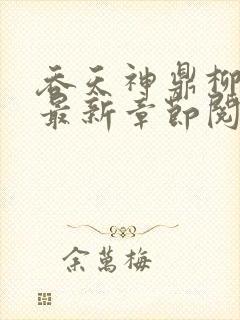 吞天神鼎柳
最新章节阅
余萬梅